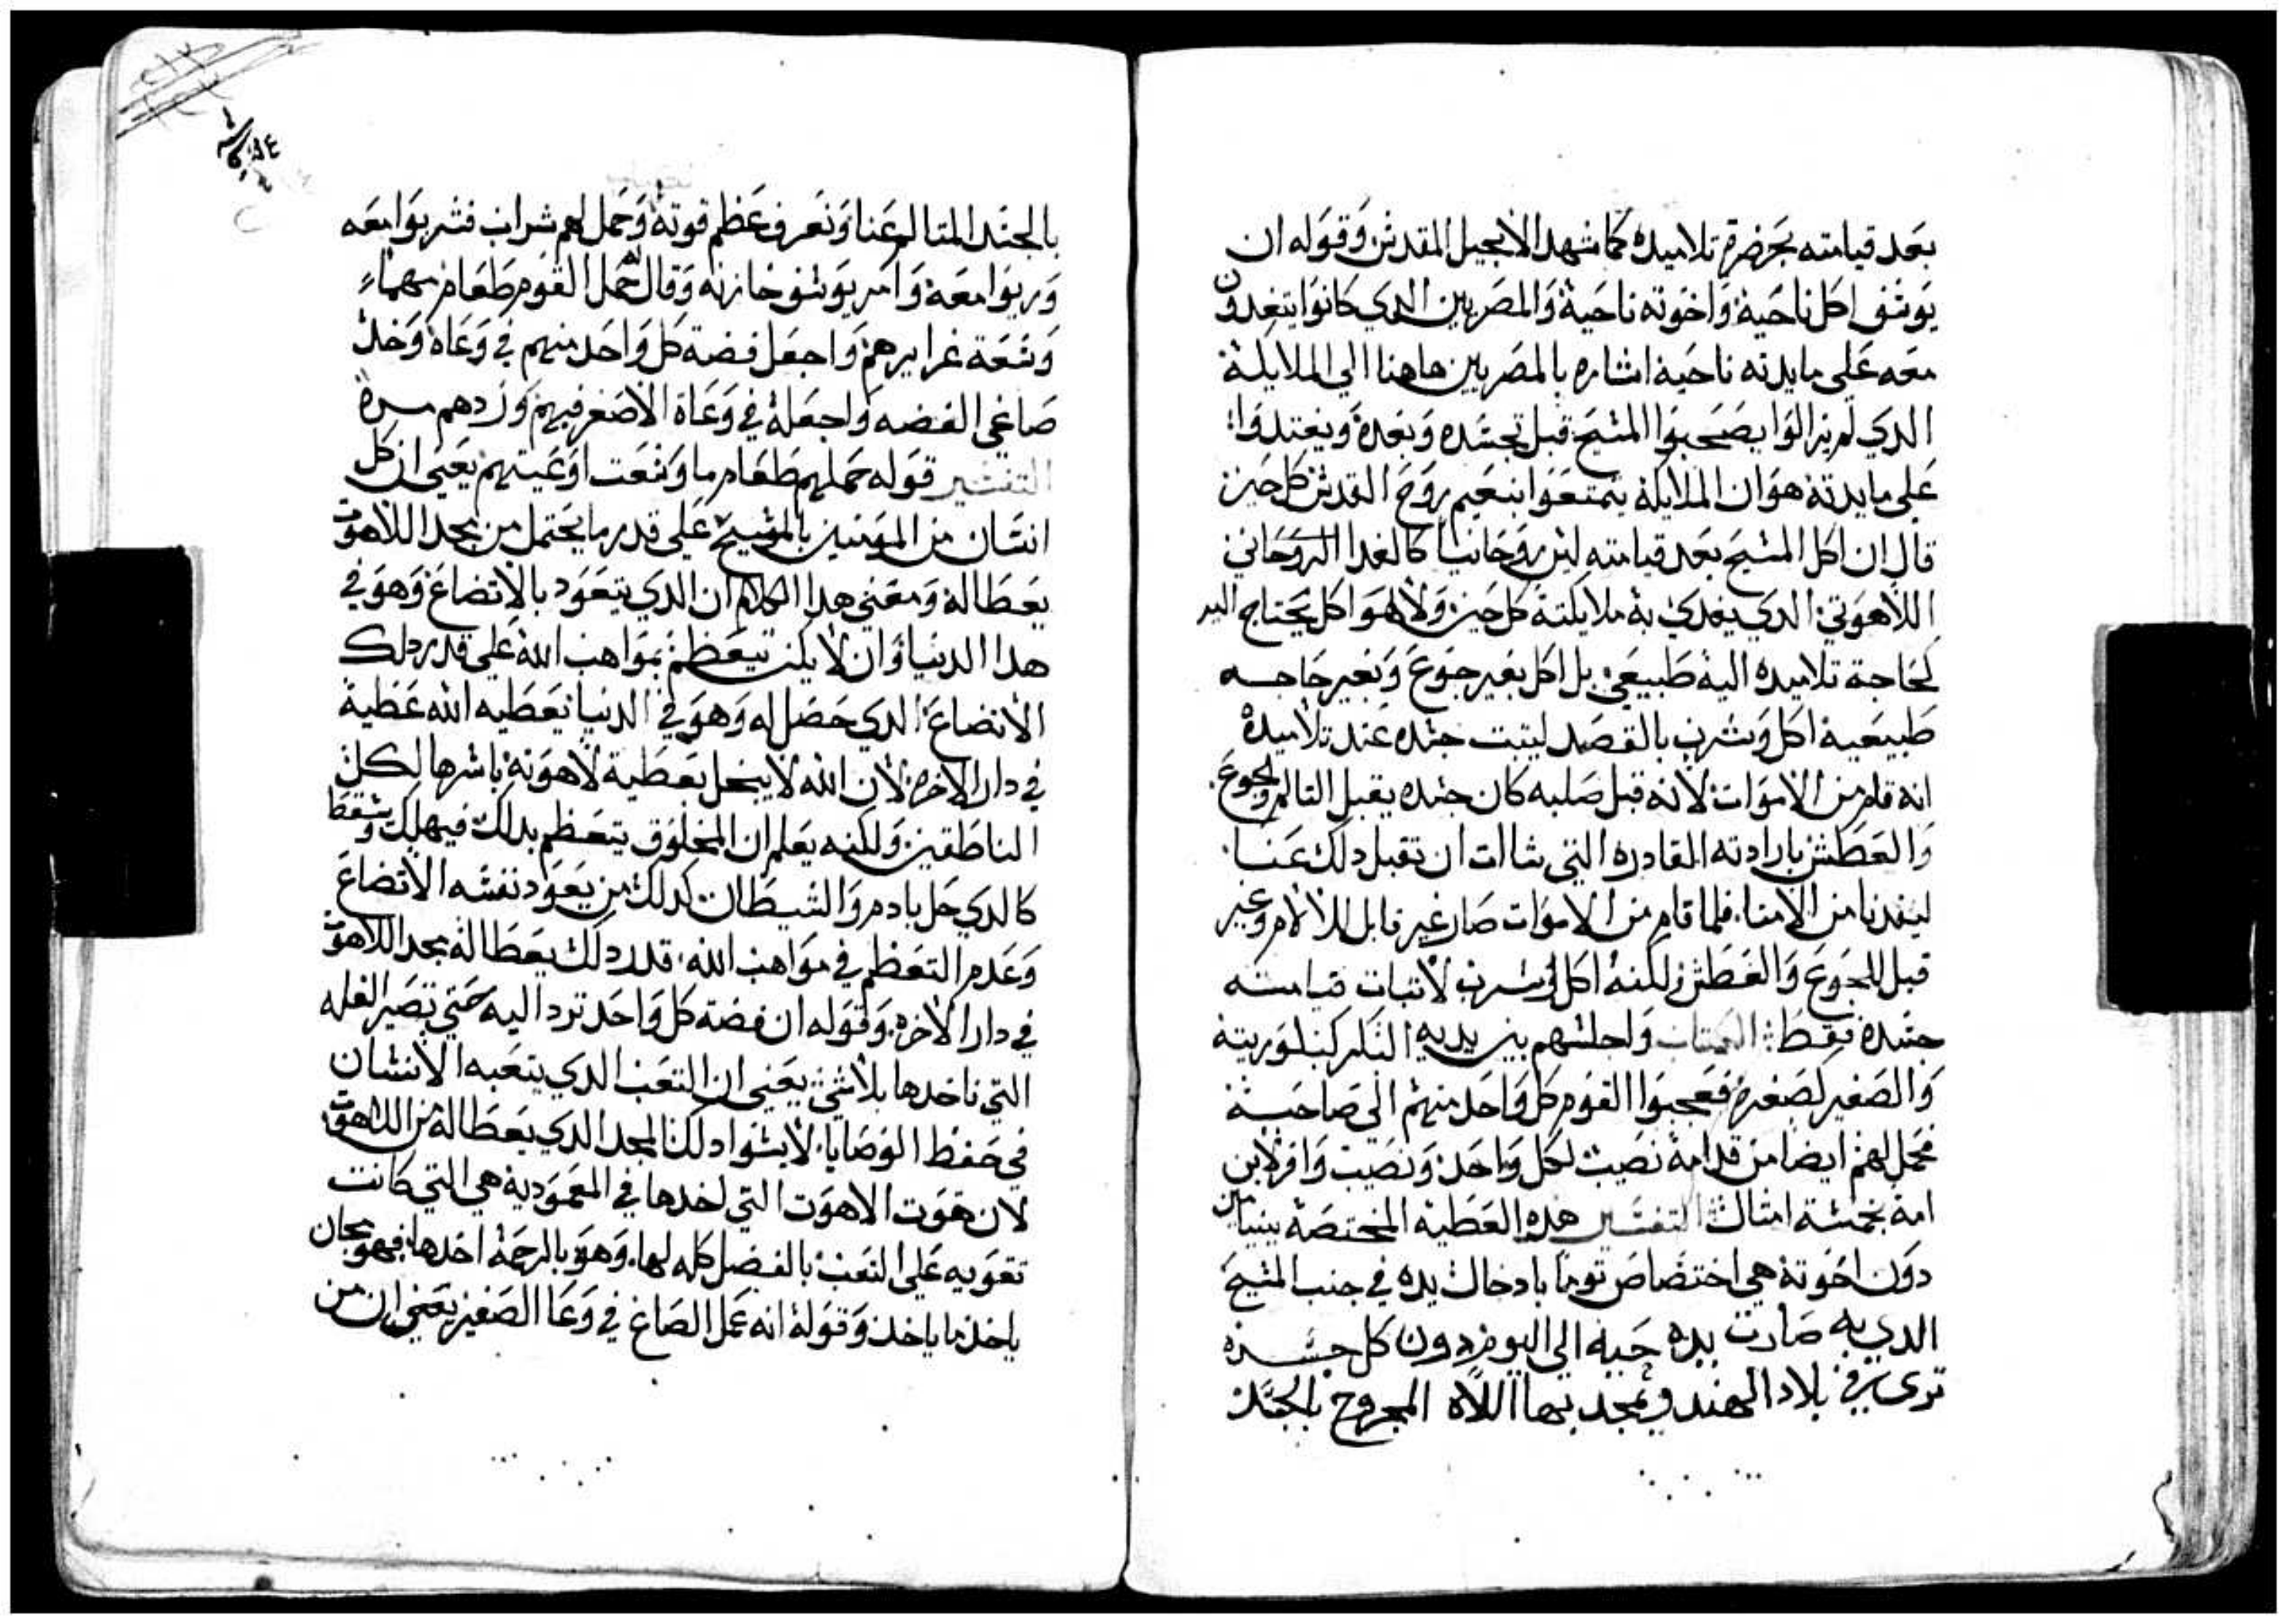 بعد قيامته بحضرة تلاميده كما شهد الانجيل المقدس وقوله ان
يوسف اكل ناحية واخوته ناحية والمصريين الدي كانوا يتغدون
معه على مايدته ناحية اشاره بالمصريين هاهنا الي الملايكة
الدي لم يزالوا يصحبوا المسيح قبل تجسده وبعده ويغتدوا
على مايدته هو ان الملايكة يتمتعوا بنعيم روح القدس كل حين
قال ان اكل المسيح بعد قيامته ليس روحانيا كالغدا الروحاني
اللاهوتي الدي يغدي به ملايكته كل حين ولا هو اكل يحتاج اليه
كحاجة تلاميده اليه طبيعي بل اكل بغير جوع وبغير حاجه
طبيعية اكل وشرب بالقصد ليتبت جسده عند تلاميده
انه قام من الاموات لانه قبل صلبه كان جسده يقبل التالم والجوع
والعطش بارادته القادره التي شاات ان تقبل دلك عنا
ليفدنا من الامنا فلما قام من الاموات صار غير قابل للالام وغير
قبل للجوع والعطش لكنه اكل وشرب لاتبات قيامته
جسده فقط الكتاب واجلسهم بين يديه البكر كبكوريته
والصغير كصغره فعجبوا القوم كل واحد منهم الي صاحبه
فحمل لهم ايضا من قدامه نصيب لكل واحد ونصيب وافر لابن
امه بخمسة امتال التفسير هده العطية المختصة ببنيامين
دون اخوته هي اختصاص توما بادخال يده في جنب المسيح
الدي به صارت يده حية الي اليوم دون كل جسده
تري في بلاد الهند ويمجد بها الالاه المجروح بالجسد
بالجسد المتالم عنا ونعرف عظم قوته وحمل لهم شراب فشربوا معه
ورووا معه وامر يوسف خازنه وقال له حمل القوم طعام مهما
وسعة غرايرهم واجعل فضة كل واحد منهم في وعاه وخد
صاعي الفضه واجعله في وعاة الاصغر فيهم وزدهم ميرة
التفسير قوله حملهم طعام ما وسعت اوعيتهم يعني ان كل
انسان من المومنين بالمسيح علي قدر ما يحتمل من مجد اللاهوت
يعطا له ومعني هدا الكلام ان الدي يتعود بالاتضاع وهو في
هدا الدنيا وان لا يكن يتعظم بمواهب الله علي قدر دلك
الاتضاع الدي حصل له وهو في الدنيا يعطيه الله عطية
في دار الاخره لان الله لا يبخل بعطية لاهوته باسرها لكل
الناطقين ولكنه يعلم ان المخلوق يتعظم بدلك فيهلك ويسقط
كالدي حل بادم والشيطان كدلك من يعود نفسه الاتضاع
وعدم التعظم في مواهب الله قدر دلك يعطا له مجد اللاهوت
في دار الاخره وقوله ان فضة كل واحد ترد اليه حتي تصير الغله
التي ناخدها بلاشي يعني ان التعب الدي يتعبه الانسان
في حفظ الوصايا لا يسوا دلك المجد الدي يعطا له من اللاهوت
لان قوت الاهوت التي اخدها في المعمودية هي التي كانت
تقويه علي التعب بالفضل كله لها وهو بالرحمة اخدها فهو مجان
ياخد ما ياخد وقوله انه عمل الصاع في وعا الصغير يعني ان من